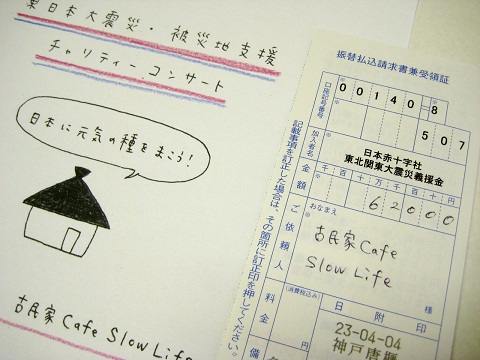 東日本大震災・被災地支援
チャリティーコンサート
日本に元気の種をまこう!
古民家 Cafe Slow Life
振替払込請求書兼受領証
口座記号番号
00140-8
507
加入者名
日本赤十字社
東北関東大震災義援金
金額
千百十万千百十円
62000
ご依頼人
おなまえ
古民家 Cafe
Slow Life
様
料金
(消費税込み)
日附印
23-04-04
神戸唐櫃
備
記載事項を訂正した場合は、その箇所に訂正印を押してください。